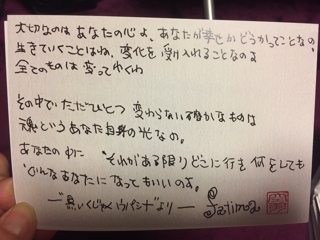 大切なのは あなたの心よ、あなたが幸せかどうかってことなの。
生きていくことはね、変化を受け入れることなのよ
全てのものは変ってゆくわ
その中で、ただひとつ 変わらない確かなものは
魂というあなた自身の光なの。
あなたの中に それがある限り どこに行き 何をしても
どんなあなたになってもいいのよ。
より ― Fatima